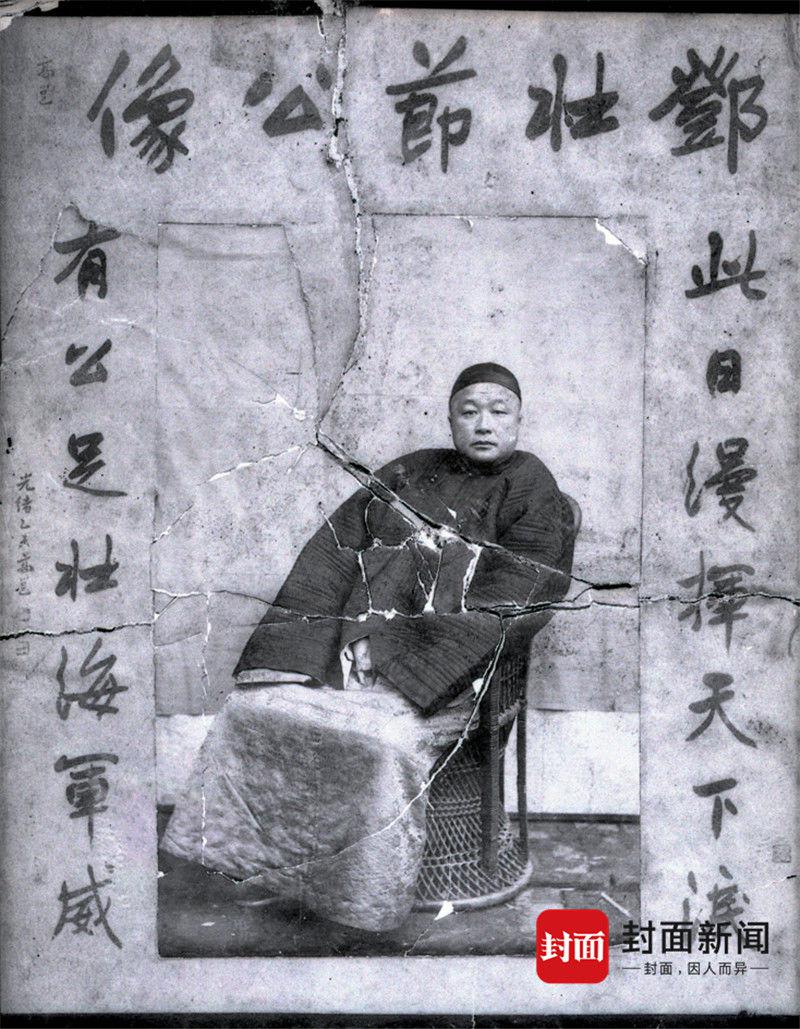 鄧壯節公像
此日漫揮天下淚
有公足壯海軍威
光緒乙未
封面
封面新闻
封面，因人而异